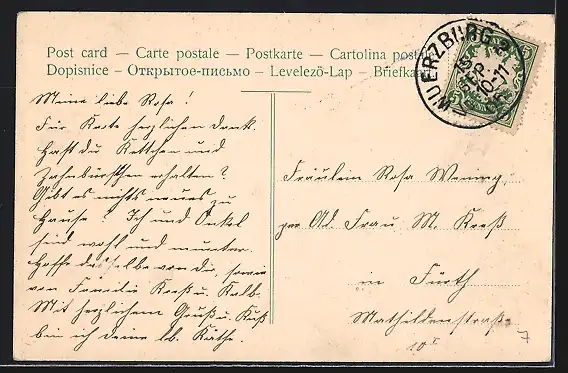 Post card — Carte postale — Postkarte — Cartolina postale
Dopisnice — Открытое-письмо — Levelező-Lap — Briefkaart
WUERZBURG 3
SEP
10-11
5
5
Meine liebe Rosa!
Für Karte herzlichen Dank.
Hast du Kettchen und
Zahnbürstchen erhalten?
Gibt es nichts neues zu
Hause? Ich und Onkel
sind wohl und munter.
Hoffe dasselbe von dir, sowie
von Familie Kreß u. Kalb.
Mit herzlichem Gruß u. Kuß
bin ich deine lb. Käthe.
Fräulein Rosa Wenning
per Ad. Frau M. Kreß
in Fürth
Mathildenstraße
10